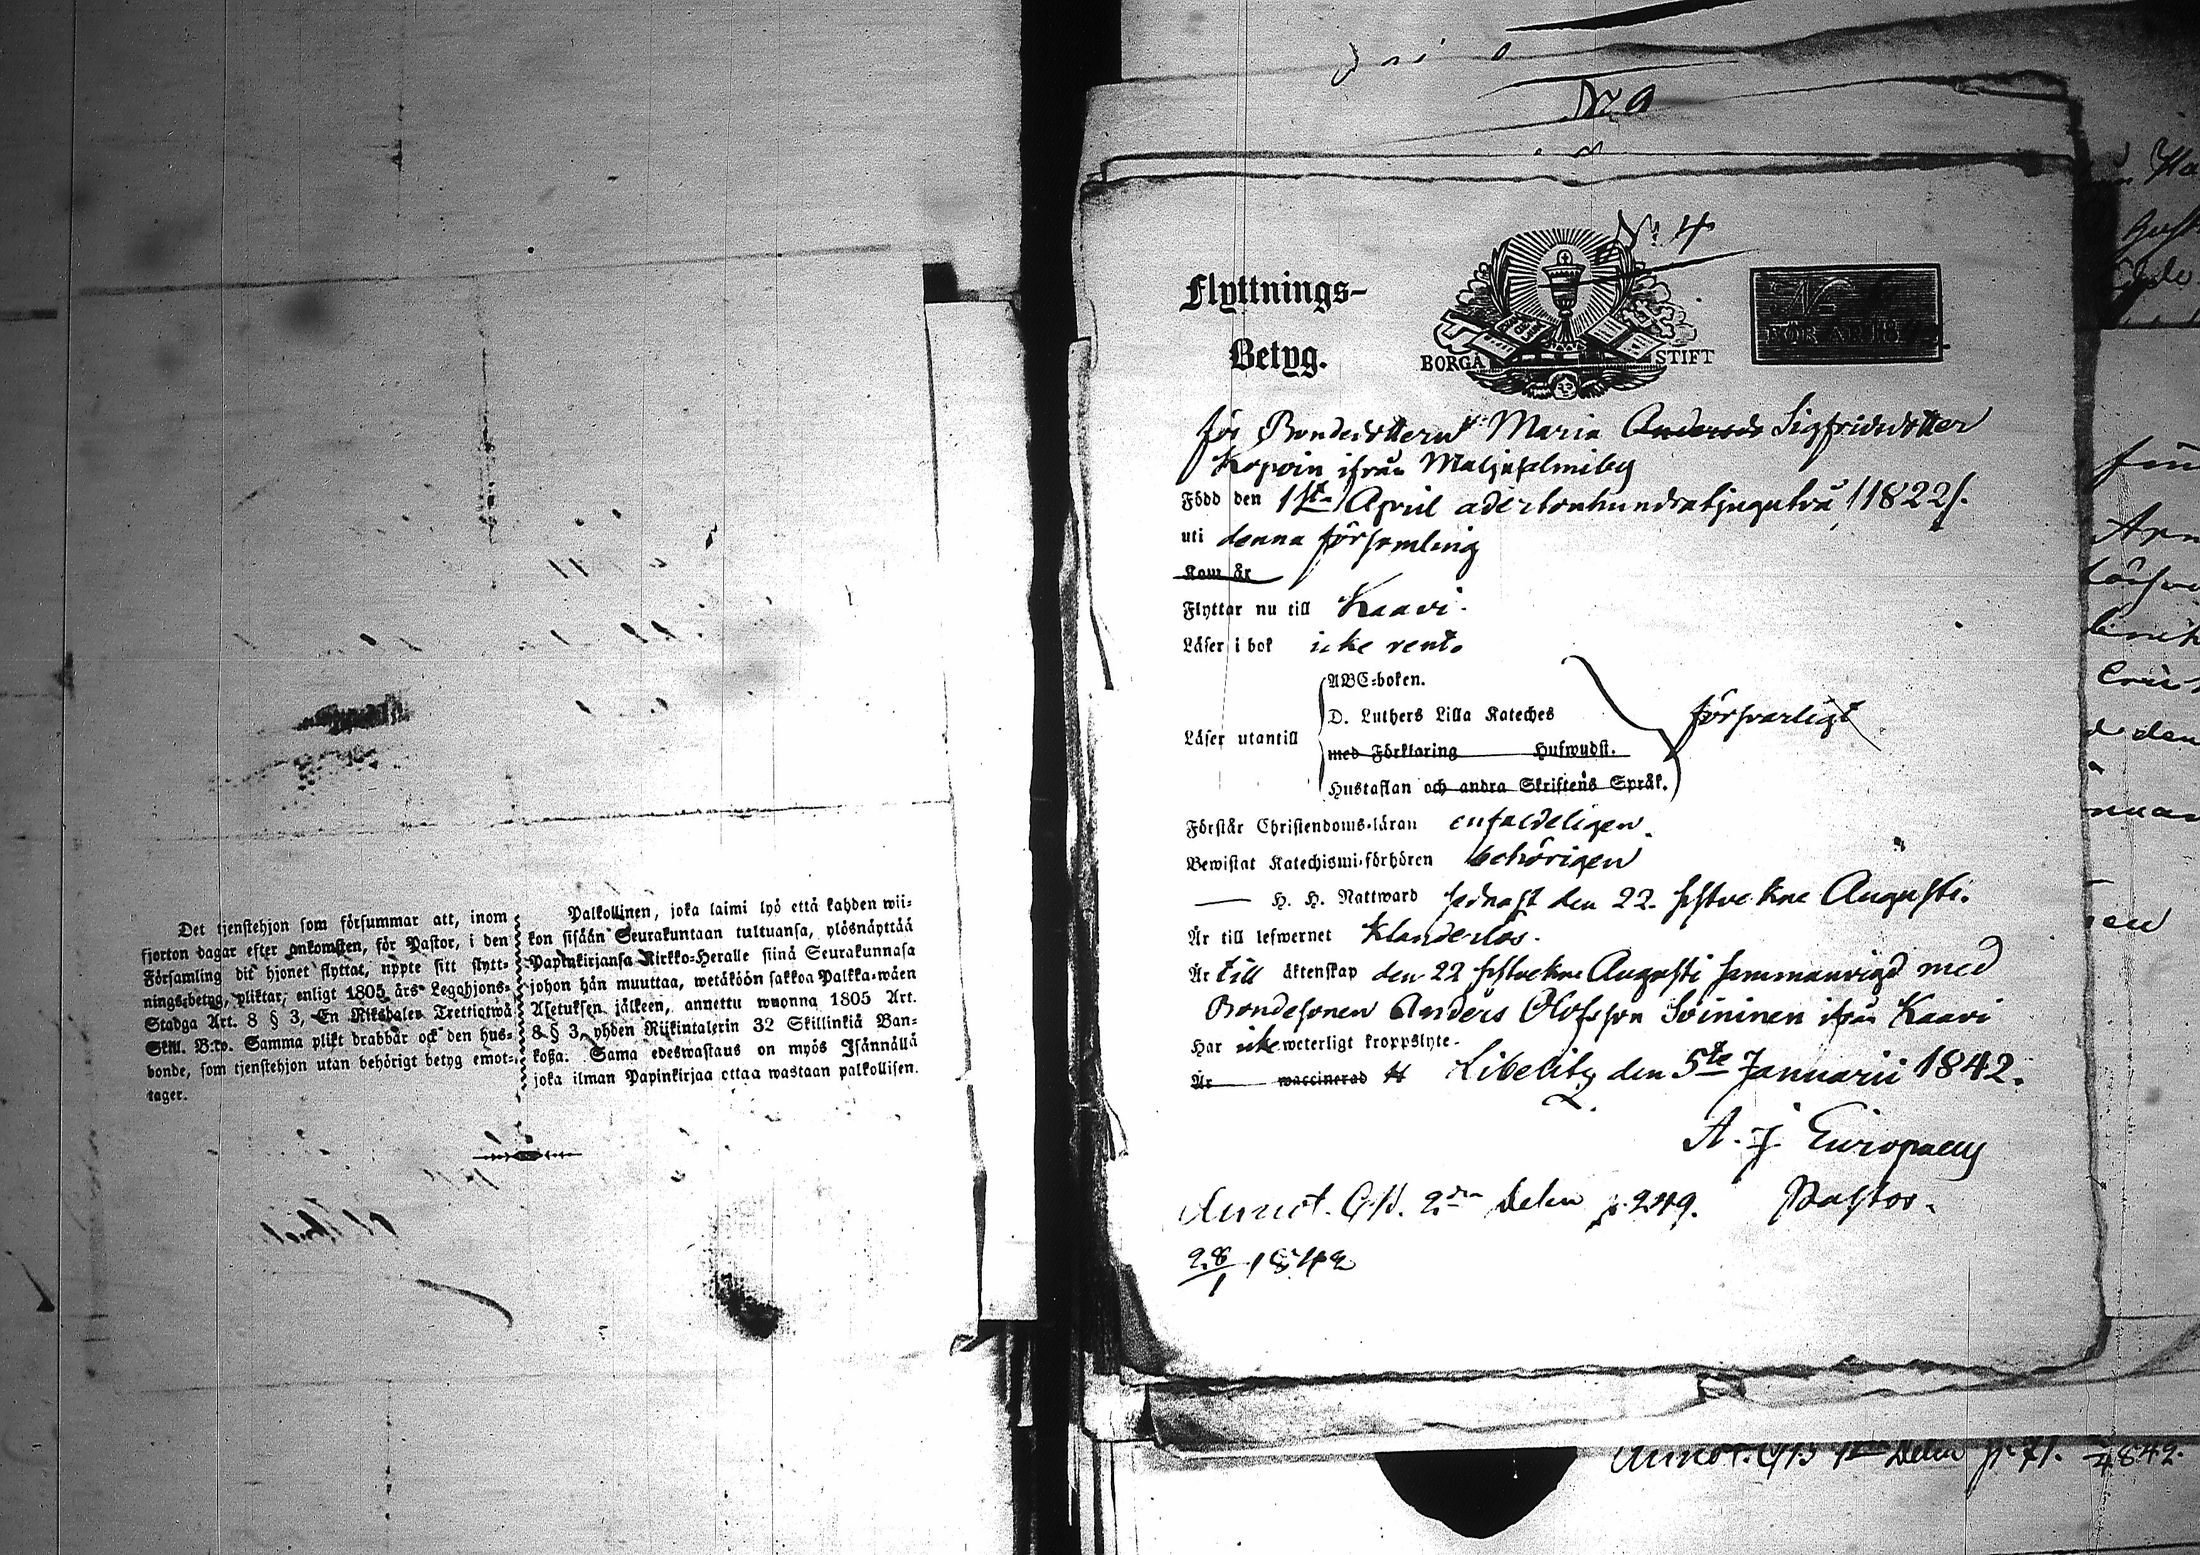 Det tjenstehjon som försummar att, inom
fjorton dagar efter ankomsten, för Pastor, i den
Församling dit hjonet flyttat, uppte sitt flytt-
ningsbetyg, pliktar, enligt 1805 års Legohjons-
Stadga Art. 8 § 3, En Riksdaler Trettiotwå
Skill. B:ko. Samma plikt drabbar ock den hus-
bonde, som tjenstehjon utan behörigt betyg emot-
tager.
Palkollinen, joka laimi lyö että kahden wii-
kon sisään Seurakuntaan tultuansa, ylösnäyttää
Papinkirjansa Kirkko-Heralle siinä Seurakunnasa
johon hän muuttaa, wetäköön sakkoa Palkka-wäen
Asetuksen jälkeen, annettu wuonna 1805 Art.
8 § 3, yhden Riikintalerin 32 Skillinkiä Ban-
koßa. Sama edeswastaus on myös Isännällä
joka ilman Papinkirjaa ottaa wastaan palkollisen.
No 9
No 4
Flyttnings-
Betyg.
BORGÅ STIFT
FÖR ÅR 18
för Bondedottern Maria Anders Sigfridsdotter
Kopoin ifrån Maljasalmiby
Född den 1ste April adertonhundratjugutvå /1822/.
uti denna församling
Kom år
Flyttar nu till Kaavi.
Läser i bok icke rent.
ABC-boken.
D. Luthers Lilla Kateches
Läser utantill försvarligt
med Förklaring Hufwudst.
Hustaflan och andra Skriftens Språk.
Förstår Christendoms-läran enfaldeligen.
Bewistat Katechismi-förhören behörigen
H. H. Nattward sednast den 22. sistvekne Augusti.
Är till lefwernet Klanderlös.
Är till äktenskap den 22 sistvekne Augusti sammanvigd med
Bondesonen Anders Olofsson Soininen ifrån Kaavi
Har icke weterligt kroppslyte.
Är waccinerad Libelitz den 5te Januarii 1842.
A. J. Europaeus
Annot. C.B. 2dra Delen p. 249. Pastor.
28/1 1842
Annot. C.B. Delen p. 71. 1842.